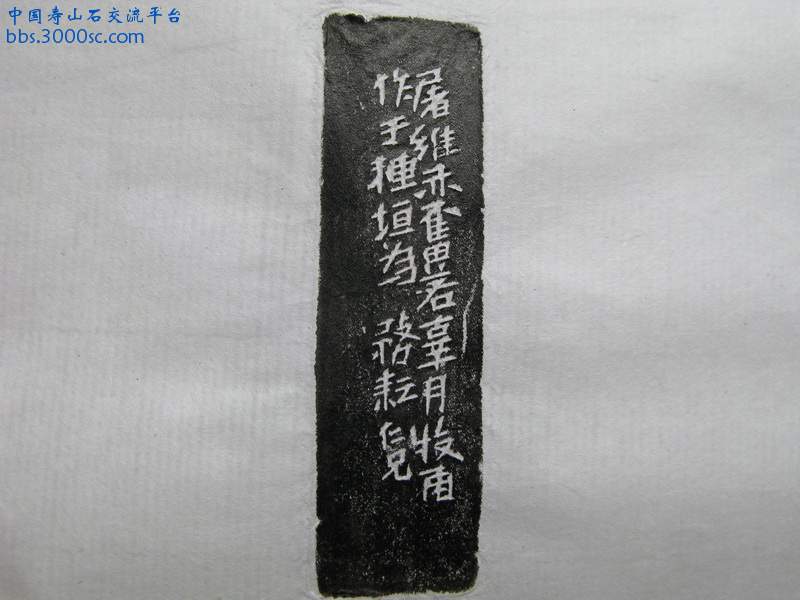 中国寿山石交流平台
bbs.3000sc.com
屠維赤奮若辜月牧甫
作于種垣為 耘仁兄